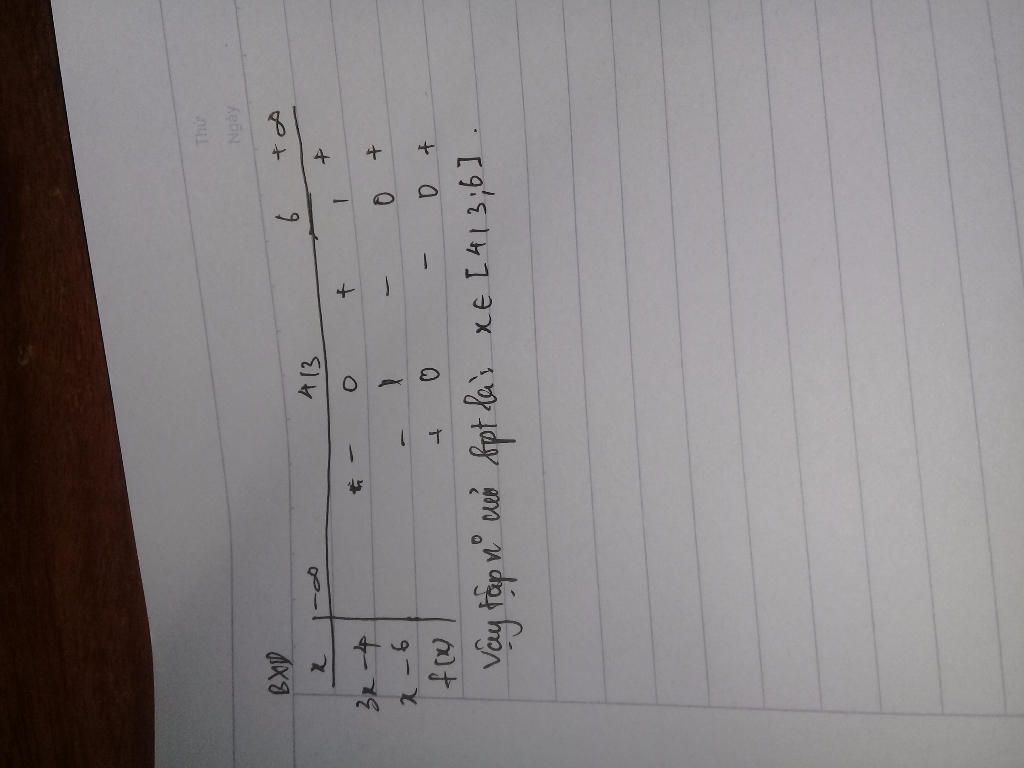 Thứ
Ngày
BXD
x -∞ 4/3 6 +∞
3x-4 - 0 + | +
x-6 - | - 0 +
f(x) + 0 - 0 +
Vậy tập n° của bpt là: x ∈ [4/3,6].